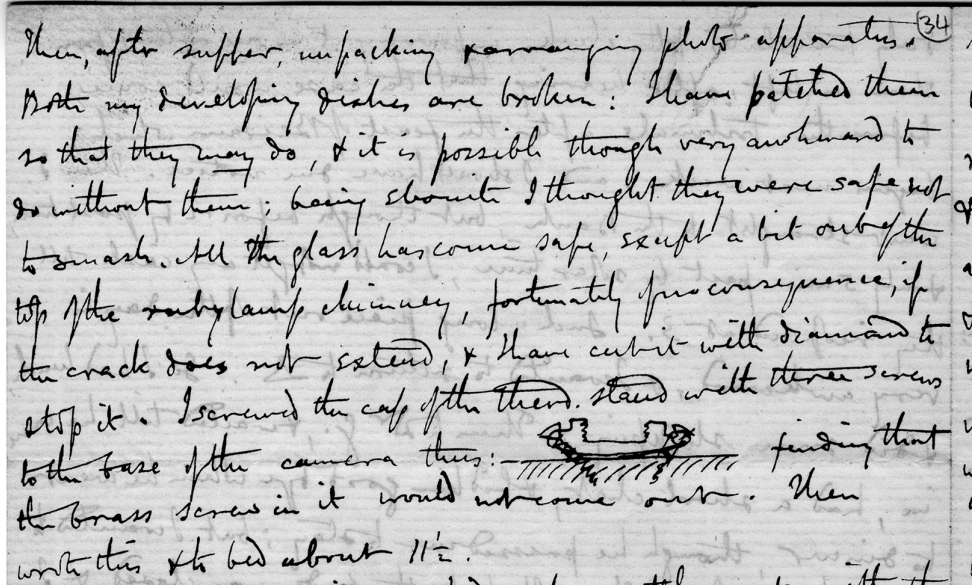 34
Then, after supper, unpacking & arranging photo-apparatus.
Both my developing dishes are broken: I have patched them
so that they may do, & it is possible though very awkward to
do without them; being ebonite I thought they were safe not
to smash. All the glass has come safe, except a bit out of the
top of the ruby lamp chimney, fortunately of no consequence, if
the crack does not extend, & I have cut it with diamond to
stop it. I screwed the cap of the stand with three screws
to the base of the camera thus: finding that
the brass screw in it would not come out. Then
wrote this & to bed about 11½.